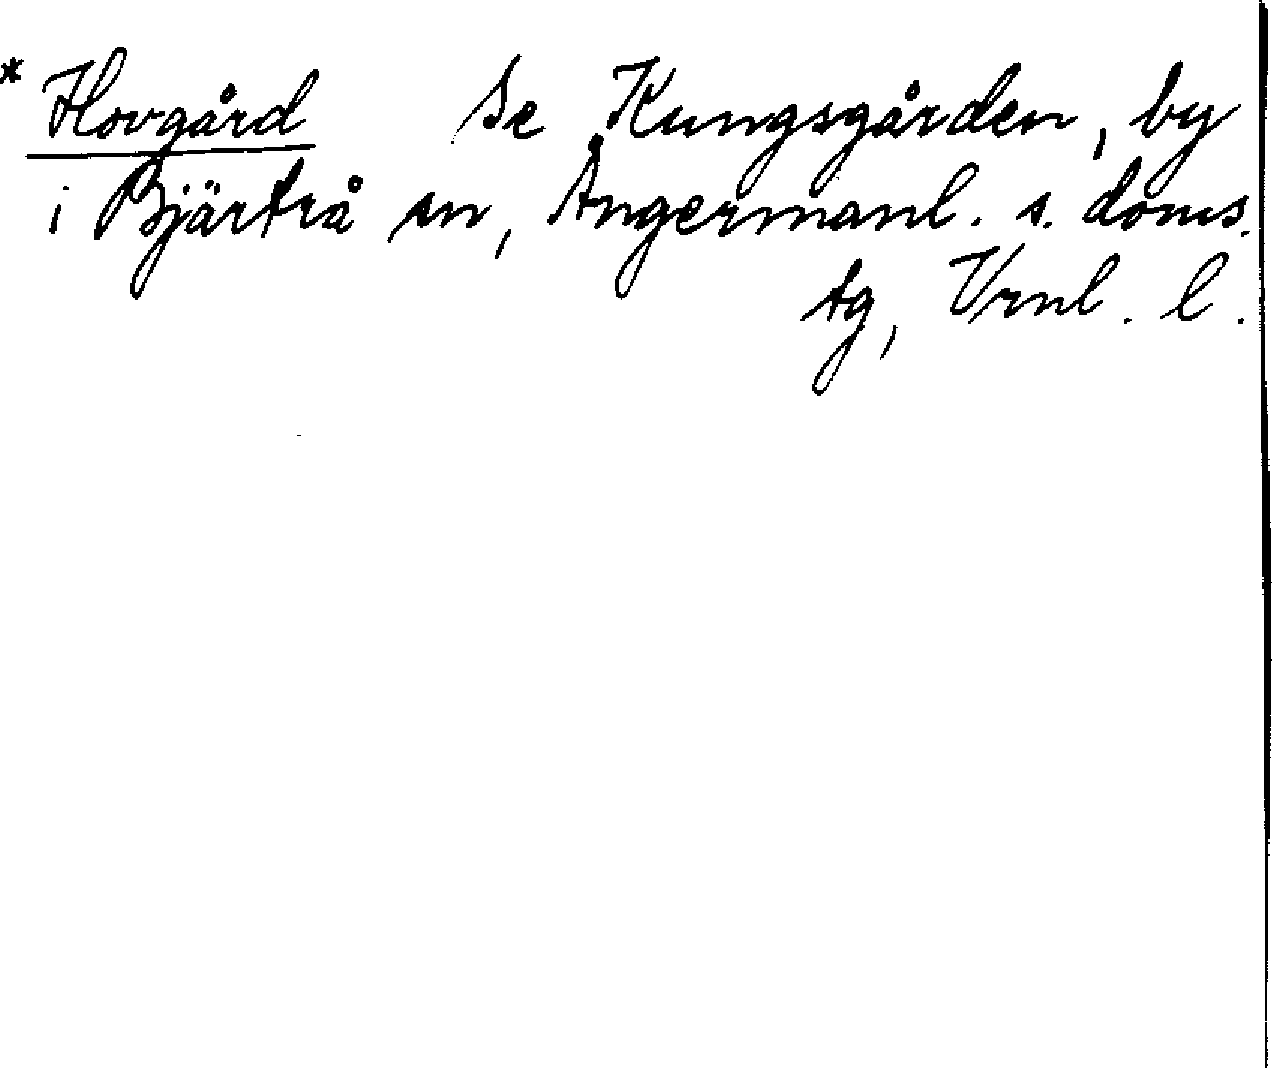 * Hovgård se Kungsgården, by
i Bjärtrå sn, Ångermanl. s. doms.
tg, Vrnl. l.